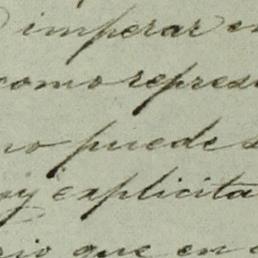 imperar en
como repres
no puede s
y explicita
que en